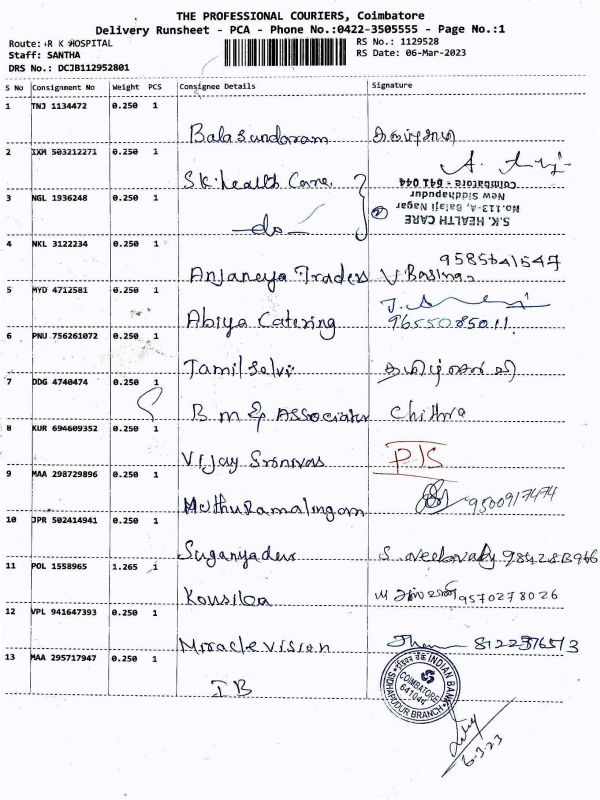 THE PROFESSIONAL COURIERS, Coimbatore
Delivery Runsheet - PCA - Phone No.:0422-3505555 - Page No.:1
Route: R K HOSPITAL
RS No.: 1129528
Staff: SANTHA
RS Date: 06-Mar-2023
DRS No.: DCJB112952801
S No Consignment No Weight PCS Consignee Details Signature
1 TNJ 1134472 0.250 1
Balasundaram
2 IXM 503212271 0.250 1
S.K. health Care.
S.K. HEALTH CARE
No.113-A, Balaji Nagar
New Siddhapudur
Coimbatore - 641 044
3 NGL 1936248 0.250 1
-do-
4 NKL 3122234 0.250 1
9585641547
Anjaneya Traders
5 MYD 4712581 0.250 1
Abiya Catering 9655085011
6 PNU 756261072 0.250 1
Tamil Selvi
7 DDG 4740474 0.250 1
B m & Associates Chithra
8 KUR 694609352 0.250 1
Vijay Srinivas P/S
9 MAA 298729896 0.250 1
Muthuramalingam 9500917474
10 JPR 502414941 0.250 1
Suganyadevi
11 POL 1558965 1.265 1
Kousilea 9570278026
12 VPL 941647393 0.250 1
Miracle vision
13 MAA 295717947 0.250 1
IB
INDIAN BANK
COIMBATORE
641044
SIDHAPUDUR BRANCH
6-3-23